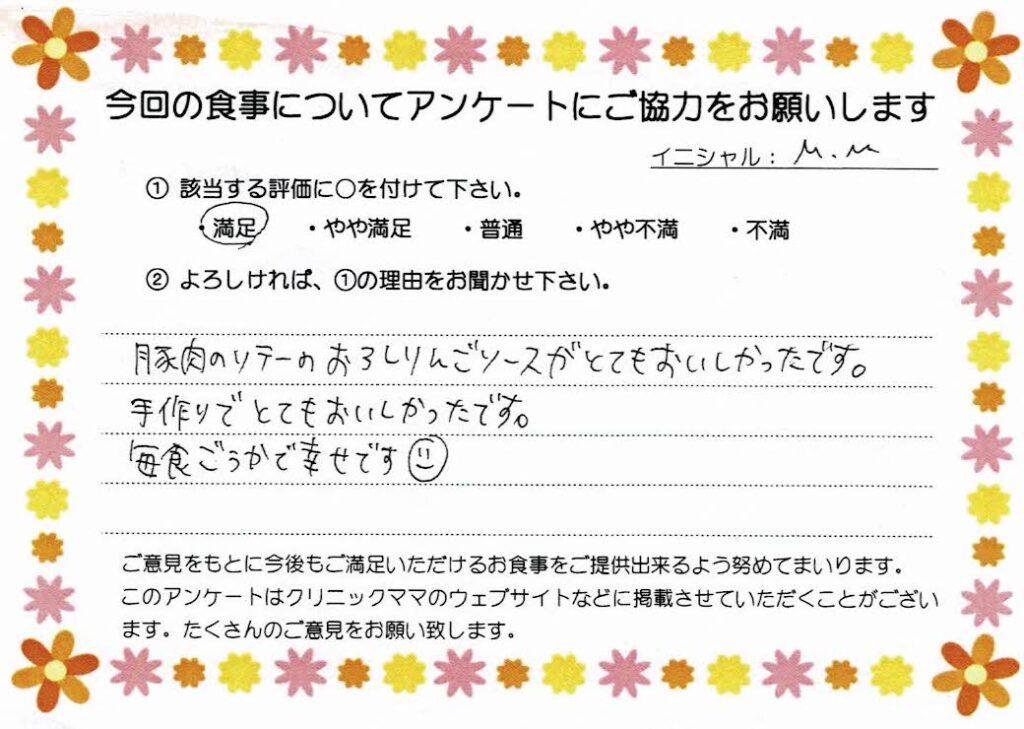 今回の食事についてアンケートにご協力をお願いします
イニシャル： M.M
① 該当する評価に〇を付けて下さい。
・満足 ・やや満足 ・普通 ・やや不満 ・不満
② よろしければ、①の理由をお聞かせ下さい。
豚肉のソテーのおろしりんごソースがとてもおいしかったです。
手作りでとてもおいしかったです。
毎食ごうかで幸せです
ご意見をもとに今後もご満足いただけるお食事をご提供出来るよう努めてまいります。
このアンケートはクリニックママのウェブサイトなどに掲載させていただくことがござい
ます。たくさんのご意見をお願い致します。